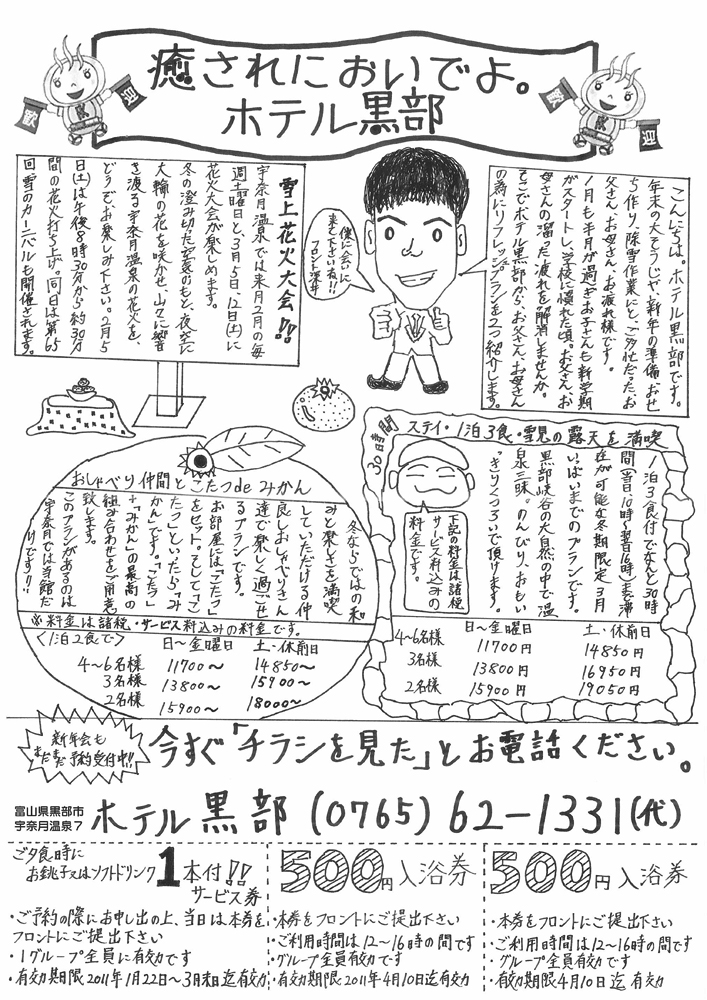 癒されにおいでよ。
ホテル黒部
歓
迎
歓
迎
こんにちは。ホテル黒部です。
年末の大そうじや、新年の準備、おせ
ち作り、除雪作業にと、ご多忙だったお
父さん、お母さん、お疲れ様です。
1月も半月が過ぎ、お子さんも新学期
がスタートし、学校に慣れた頃。お父さん、お
母さんの溜った疲れを解消しませんか。
そこでホテル黒部から、お父さん、お母さん
の為にリフレッシュプランを2つ紹介します。
僕に会いに
来て下さいね!!
フロント
雪上花火大会!!
宇奈月温泉では来月2月の毎
週土曜日と、3月5日、12日(土)に
花火大会が楽しめます。
冬の澄み切った空気のもと、夜空に
大輪の花を咲かせ、山々に響
き渡る宇奈月温泉の花火を、
どうぞ、お楽しみ下さい。2月5
日(土)は午後8時30分から約30分
間の花火打ち上げ。同日は第65
回雪のカーニバルも開催されます。
30時間
ステイ・1泊3食・雪見の露天を満喫
1泊3食付でなんと30時
間(当日10時～翌日16時)まで滞
在が可能な冬期限定3月
いっぱいまでのプランです。
黒部峡谷の大自然の中で温
泉三昧。のんびり、おもい
っきりくつろいで頂けます。
下記の料金は諸税
サービス料込みの
料金です。
日～金曜日 土・休前日
4～6名様 11700円 14850円
3名様 13800円 16950円
2名様 15900円 19050円
おしゃべり仲間とこたつdeみかん
冬ならではの和
みと楽しさを満喫
していただける仲
良しおしゃべりさん
達で楽しく過ごせ
るプランです。
お部屋には「こたつ」
をセット。そして「こ
たつ」といったら「み
かん」です。「こたつ」
+「みかん」の最高の
組み合わせをご用意
致します。
このプランがあるのは
宇奈月では当館だ
けです!!
※料金は諸税・サービス料込みの料金です。
〈1泊2食で〉 日～金曜日 土・休前日
4～6名様 11700～ 14850～
3名様 13800～ 15900～
2名様 15900～ 18000～
新年会も
まだまだ予約受付中!!
今すぐ「チラシを見た」とお電話ください。
富山県黒部市
宇奈月温泉7
ホテル黒部 (0765)62-1331(代)
ご夕食時に
お銚子又はソフトドリンク1本付!!
サービス券
・ご予約の際にお申し出の上、当日は本券を
フロントにご提出下さい
・1グループ全員に有効です
・有効期限2011年1月22日～3月末日迄有効
500円入浴券
・本券をフロントにご提出下さい
・ご利用時間は12～16時の間です
・グループ全員有効です
・有効期限2011年4月10日迄有効
500円入浴券
・本券をフロントにご提出下さい
・ご利用時間は12～16時の間です
グループ全員有効です
・有効期限4月10日迄有効